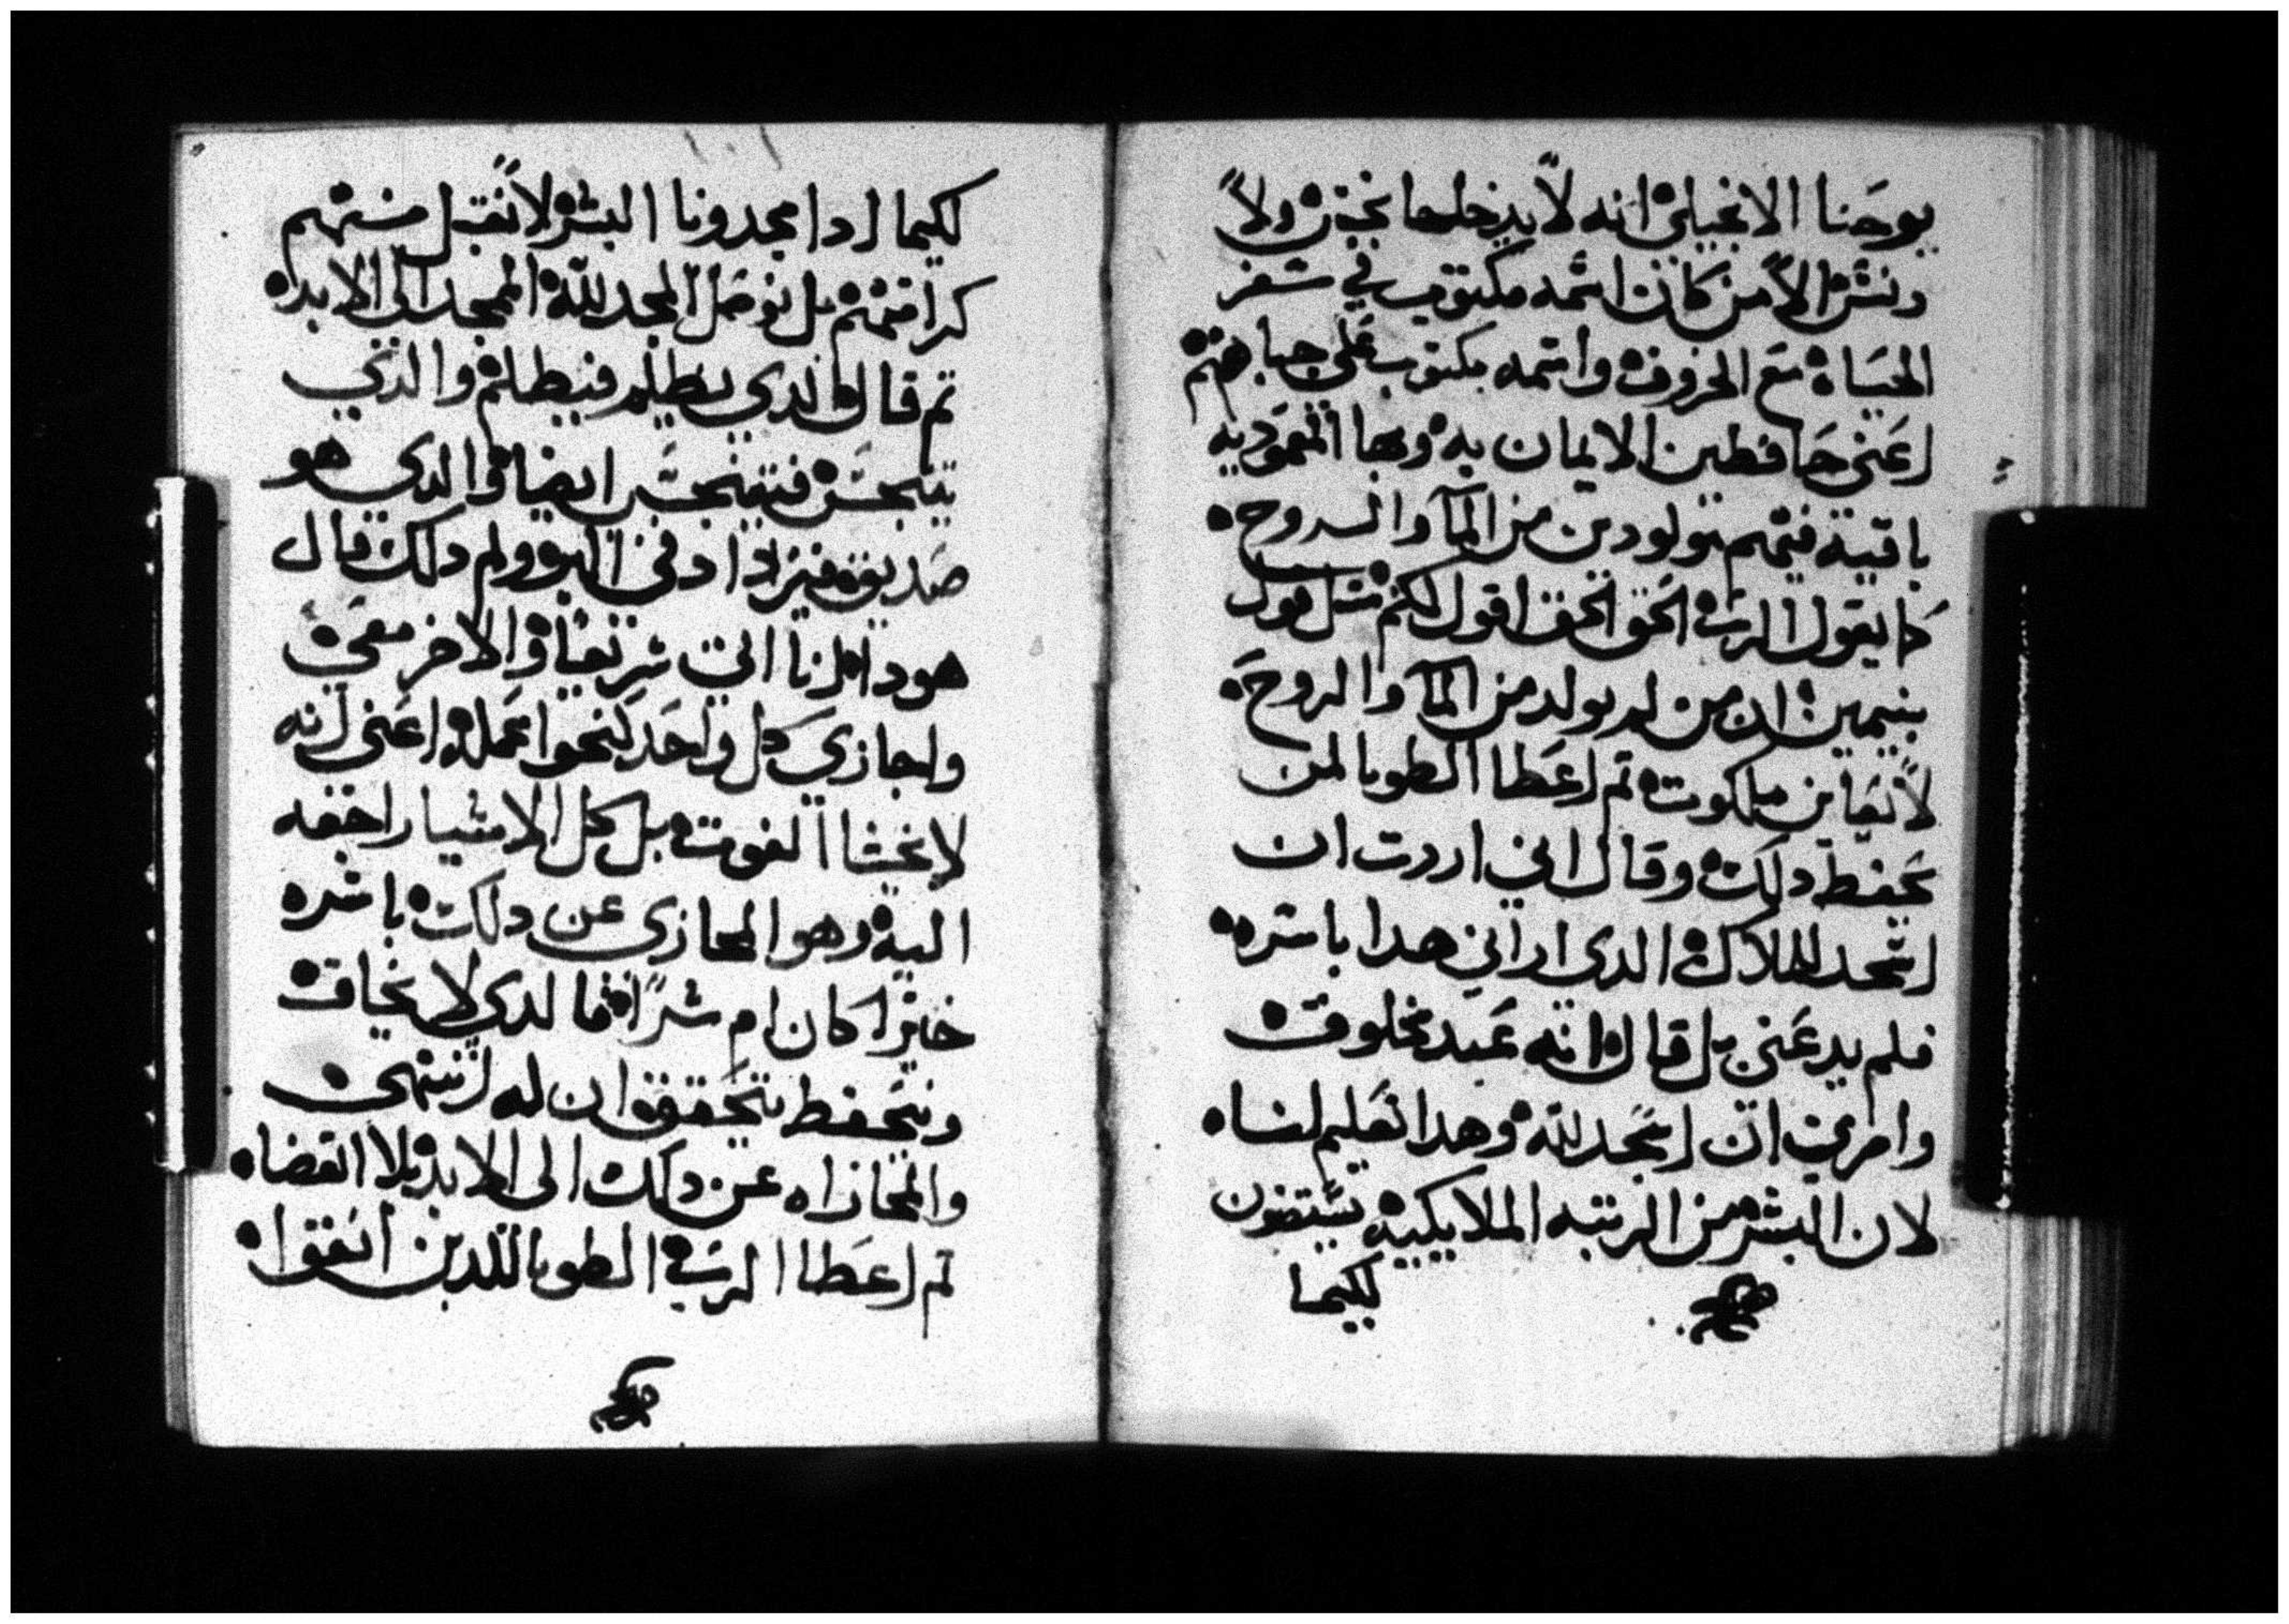 يوحنا الانجيلي انه لا يدخلها نجس ولا
دنس الا من كان اسمه مكتوب في سفر
الحياه مع الخروف واسمه مكتوب علي جباهتهم
اعني حافظين الايمان به وبها المعموديه
باقية فيهم مولودين من المآ والروح
كما يقول الرب الحق الحق اقول لكم مثل قول
بيمين ان من لم يولد من المآ والروح
لا يعاين ملكوت ثم اعطا الطوبا لمن
يحفظ دلك وقال اني اردت ان
اسجد للملاك الدي اراني هدا باسره
فلم يدعني بل قال انه عبد مخلوق
وامرني ان اسجد لله وهدا تعليم لنا
لان البشر من الرتبه الملايكيه
لكيما
لكيما ادا مجدونا البشر لا نقبل منهم
كرامتهم بل نوصل المجد لله الممجد الى الابد
تم قال الدي يظلم فيظلم والدي
يتنجس فيتنجس ايضا والدي هو
صديق فيزداد في البر ولم دلك قال
هودا انا اتي سريعا والاخر معي
واجازي كل واحد كنحوا عمله اعني انه
لا يخشا الفوت بل كل الاشيا راجعه
اليه وهو المجازي عن دلك باسره
خيرا كان ام شرا فما لدي لا يخاف
ويتحفظ يتحقق ان له انتهى
والمجازاه عن دلك الى الابد بلا انقضا
تم اعطا الرب الطوبا للدين اتفقوا